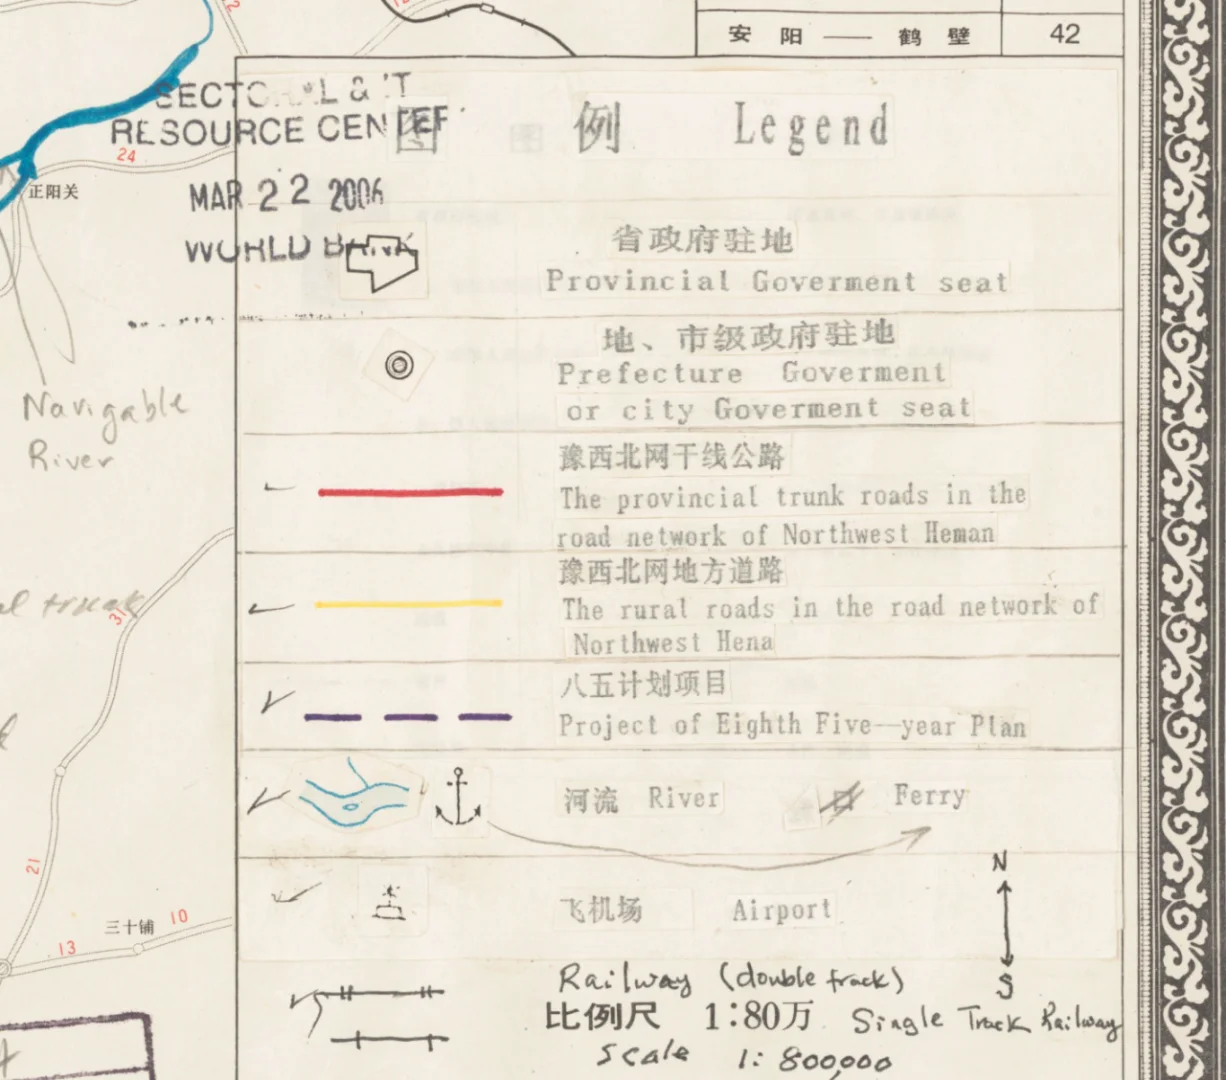 安 阳 —— 鹤 壁 42
SECTORAL & IT
RESOURCE CENTER
图 例 Legend
24
正阳关
MAR 22 2006
WORLD BANK
省政府驻地
Provincial Goverment seat
地、市级政府驻地
Prefecture Goverment
or city Goverment seat
Navigable
River
豫西北网干线公路
The provincial trunk roads in the
road network of Northwest Heman
豫西北网地方道路
The rural roads in the road network of
Northwest Hena
31
八五计划项目
Project of Eighth Five—year Plan
河流 River Ferry
21
N
飞机场 Airport
三十铺
10
13
S
Railway (double track)
比例尺 1:80万 Single Track Railway
Scale 1: 800,000